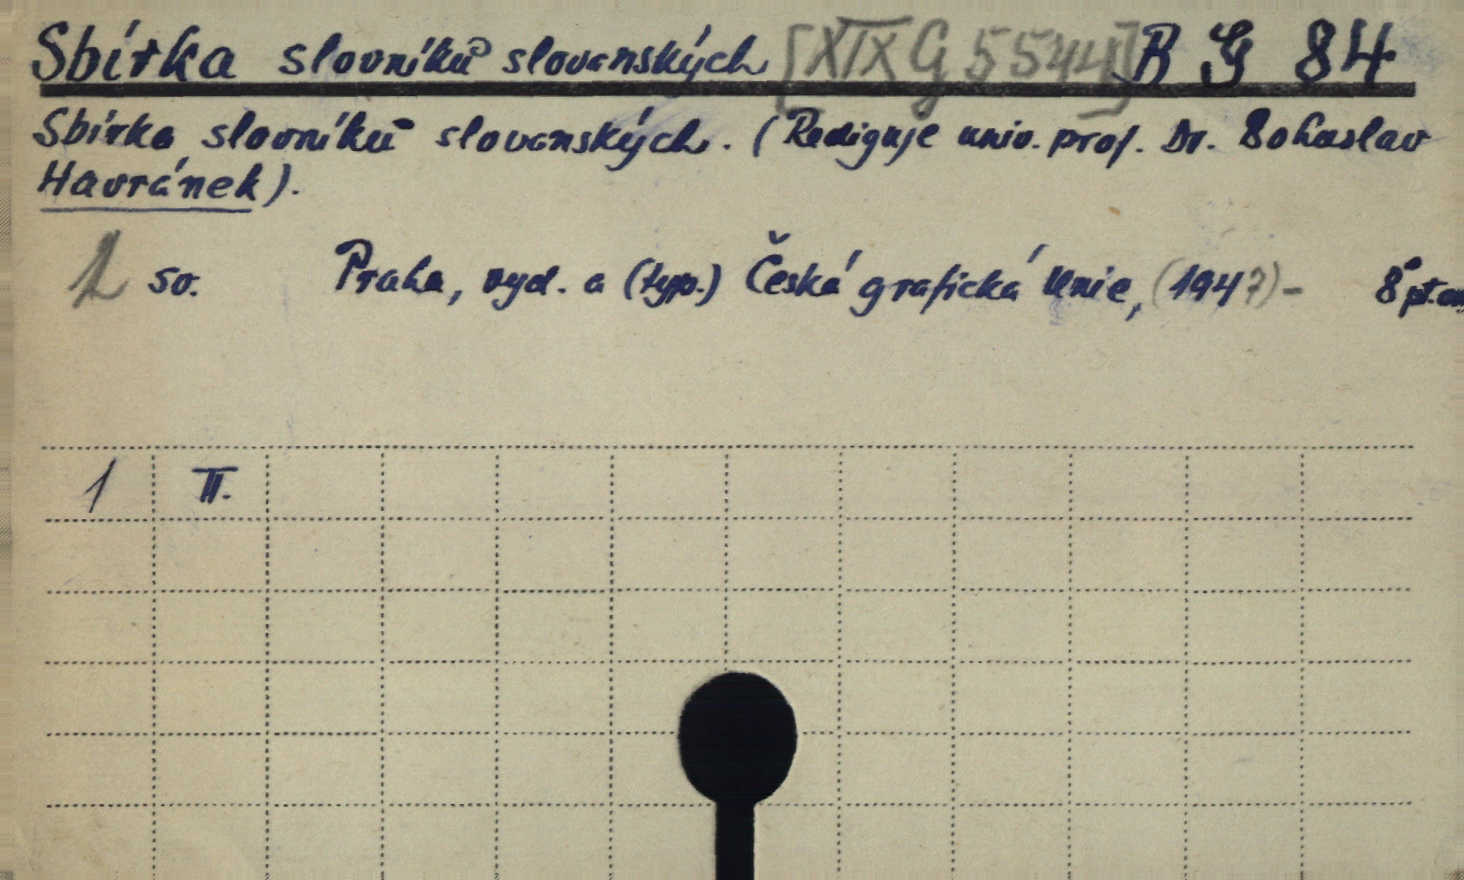 Sbírka slovníků slovanských [XIX G 5544] R G 84
Sbírka slovníků slovanských. (Rediguje univ. prof. Dr. Bohuslav
Havránek).
2 sv. Praha, vyd. a (typ.) Česká grafická Unie, (194?)- 8°
1 II.